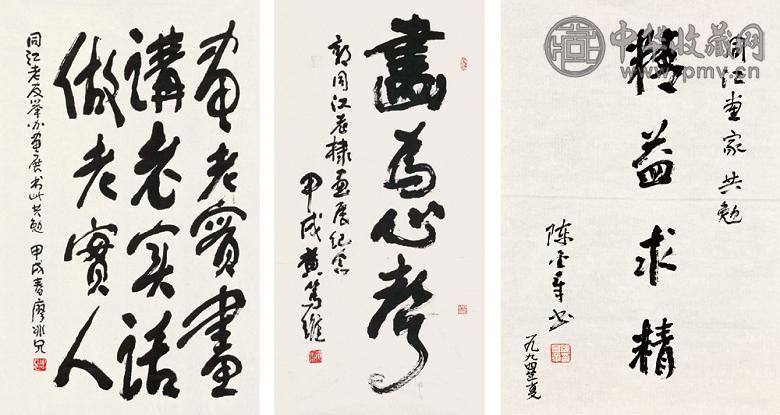 畫老實畫
講老实话
做老實人
同江老友举办画展书此共勉 甲戌春廖冰兄
畫為心聲
郭同江老棣画展纪念
甲戌黄笃维
同江画家共勉
精益求精
陈金章书
一九九四年夏
中华收藏网
www.pmv.cn